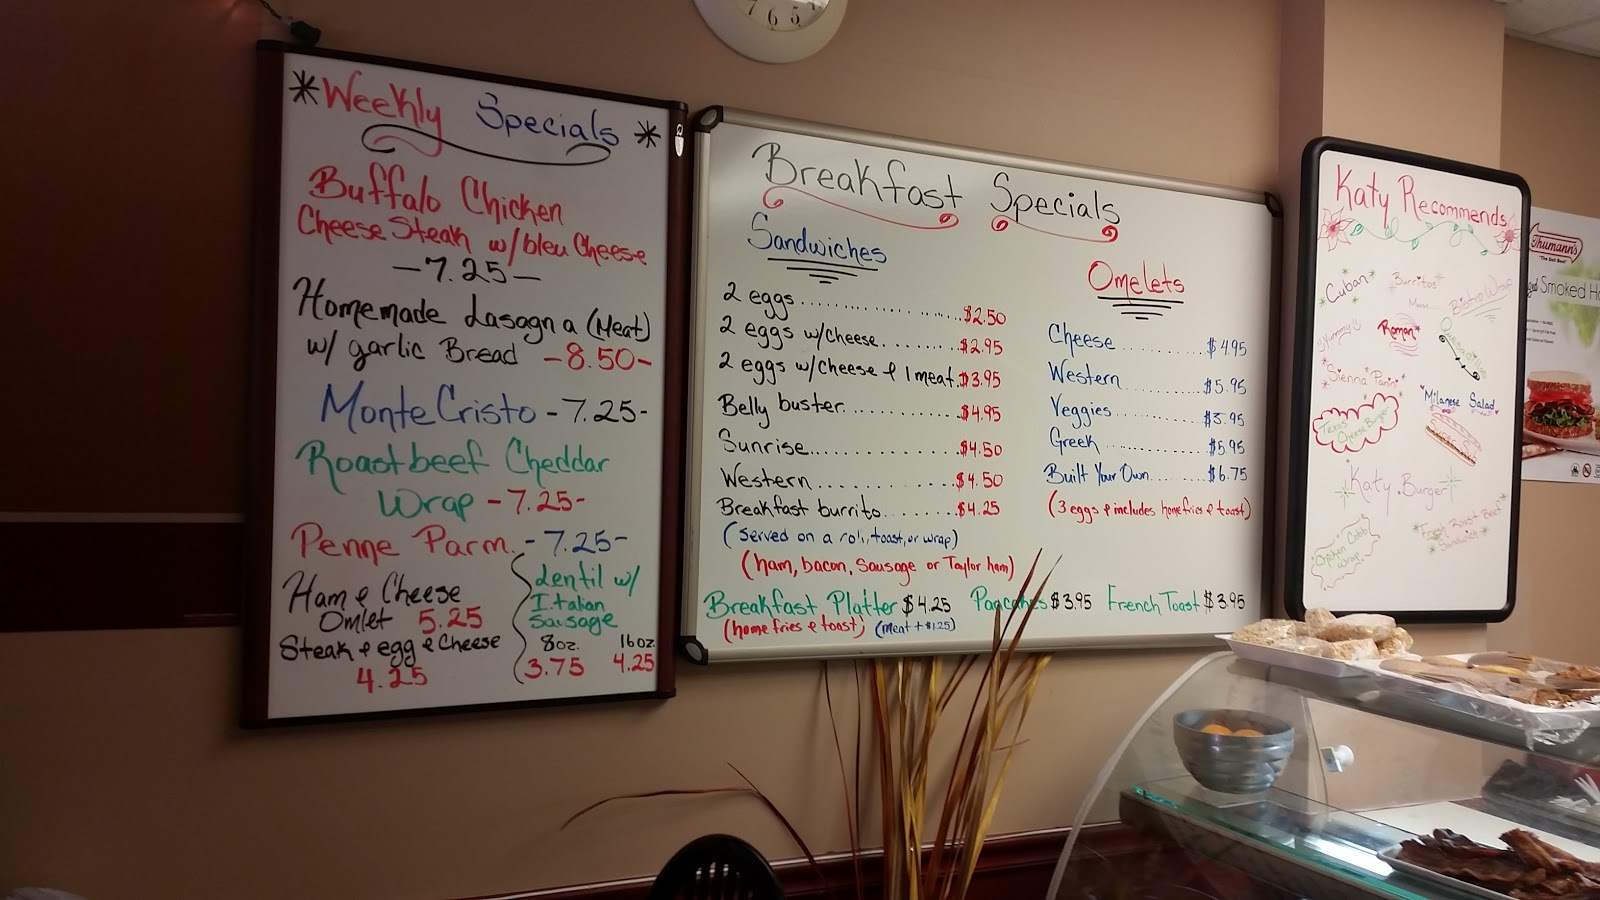 7 6 5
*Weekly Specials*
Buffalo Chicken
Cheese Steak w/bleu Cheese
-7.25-
Homemade Lasagna (Meat)
w/ garlic Bread -8.50-
Monte Cristo -7.25-
Roastbeef Cheddar
Wrap -7.25-
Penne Parm. -7.25-
Ham & Cheese
Omlet 5.25
Steak & egg & Cheese
4.25
Lentil w/
Italian
Sausage
8oz. 16oz.
3.75 4.25
Breakfast Specials
Sandwiches
2 eggs.....................$2.50
2 eggs w/cheese........$2.95
2 eggs w/cheese & 1 meat.$3.95
Belly buster..............$4.95
Sunrise..................$4.50
Western.................$4.50
Breakfast burrito........$4.25
(Served on a roll, toast, or wrap)
(ham, bacon, Sausage or Taylor ham)
Omelets
Cheese............$4.95
Western...........$5.95
Veggies...........$5.95
Greek.............$5.95
Built Your Own......$6.75
(3 eggs & includes homefries & toast)
Breakfast Platter $4.25 Pancakes $3.95 French Toast $3.95
(home fries & toast) (meat + $1.25)
Katy Recommends
Cuban
Burritos
Bistro Wrap
Yummy!!
Roman
Sienna Panini
Milanese Salad
Texas
Cheese Burger
Katy Burger
Fresh Roast Beef
Sandwich
Chicken Cobb
Wrap
Thumann's
"The Deli Best"
Smoked